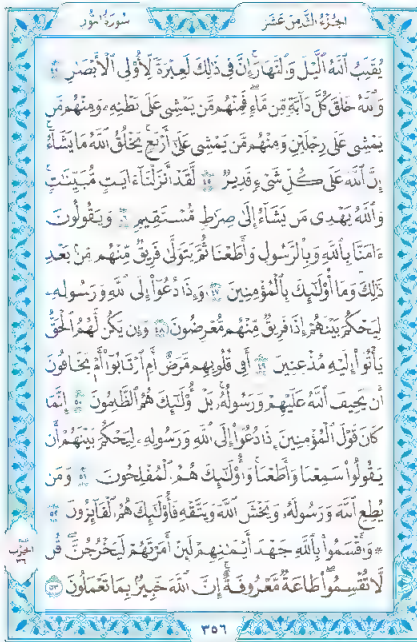 الجزء الثامن عشر
سورة النور
يُقَلِّبُ ٱللَّهُ ٱلَّيۡلَ وَٱلنَّهَارَۚ إِنَّ فِي ذَٰلِكَ لَعِبۡرَةٗ لِّأُوْلِي ٱلۡأَبۡصَٰرِ ٤٤
وَٱللَّهُ خَلَقَ كُلَّ دَآبَّةٖ مِّن مَّآءٖۖ فَمِنۡهُم مَّن يَمۡشِي عَلَىٰ بَطۡنِهِۦ وَمِنۡهُم مَّن
يَمۡشِي عَلَىٰ رِجۡلَيۡنِ وَمِنۡهُم مَّن يَمۡشِي عَلَىٰٓ أَرۡبَعٖۚ يَخۡلُقُ ٱللَّهُ مَا يَشَآءُۚ
إِنَّ ٱللَّهَ عَلَىٰ كُلِّ شَيۡءٖ قَدِيرٞ ٤٥ لَّقَدۡ أَنزَلۡنَآ ءَايَٰتٖ مُّبَيِّنَٰتٖۚ
وَٱللَّهُ يَهۡدِي مَن يَشَآءُ إِلَىٰ صِرَٰطٖ مُّسۡتَقِيمٖ ٤٦ وَيَقُولُونَ
ءَامَنَّا بِٱللَّهِ وَبِٱلرَّسُولِ وَأَطَعۡنَا ثُمَّ يَتَوَلَّىٰ فَرِيقٞ مِّنۡهُم مِّنۢ بَعۡدِ
ذَٰلِكَۚ وَمَآ أُوْلَٰٓئِكَ بِٱلۡمُؤۡمِنِينَ ٤٧ وَإِذَا دُعُوٓاْ إِلَى ٱللَّهِ وَرَسُولِهِۦ
لِيَحۡكُمَ بَيۡنَهُمۡ إِذَا فَرِيقٞ مِّنۡهُم مُّعۡرِضُونَ ٤٨ وَإِن يَكُن لَّهُمُ ٱلۡحَقُّ
يَأۡتُوٓاْ إِلَيۡهِ مُذۡعِنِينَ ٤٩ أَفِي قُلُوبِهِم مَّرَضٌ أَمِ ٱرۡتَابُوٓاْ أَمۡ يَخَافُونَ
أَن يَحِيفَ ٱللَّهُ عَلَيۡهِمۡ وَرَسُولُهُۥۚ بَلۡ أُوْلَٰٓئِكَ هُمُ ٱلظَّٰلِمُونَ ٥٠ إِنَّمَا
كَانَ قَوۡلَ ٱلۡمُؤۡمِنِينَ إِذَا دُعُوٓاْ إِلَى ٱللَّهِ وَرَسُولِهِۦ لِيَحۡكُمَ بَيۡنَهُمۡ أَن
يَقُولُواْ سَمِعۡنَا وَأَطَعۡنَاۚ وَأُوْلَٰٓئِكَ هُمُ ٱلۡمُفۡلِحُونَ ٥١ وَمَن
يُطِعِ ٱللَّهَ وَرَسُولَهُۥ وَيَخۡشَ ٱللَّهَ وَيَتَّقۡهِ فَأُوْلَٰٓئِكَ هُمُ ٱلۡفَآئِزُونَ ٥٢
۞ وَأَقۡسَمُواْ بِٱللَّهِ جَهۡدَ أَيۡمَٰنِهِمۡ لَئِنۡ أَمَرۡتَهُمۡ لَيَخۡرُجُنَّۖ قُل
لَّا تُقۡسِمُواْۖ طَاعَةٞ مَّعۡرُوفَةٌۚ إِنَّ ٱللَّهَ خَبِيرُۢ بِمَا تَعۡمَلُونَ ٥٣
الحزب
٣٦
٣٥٦